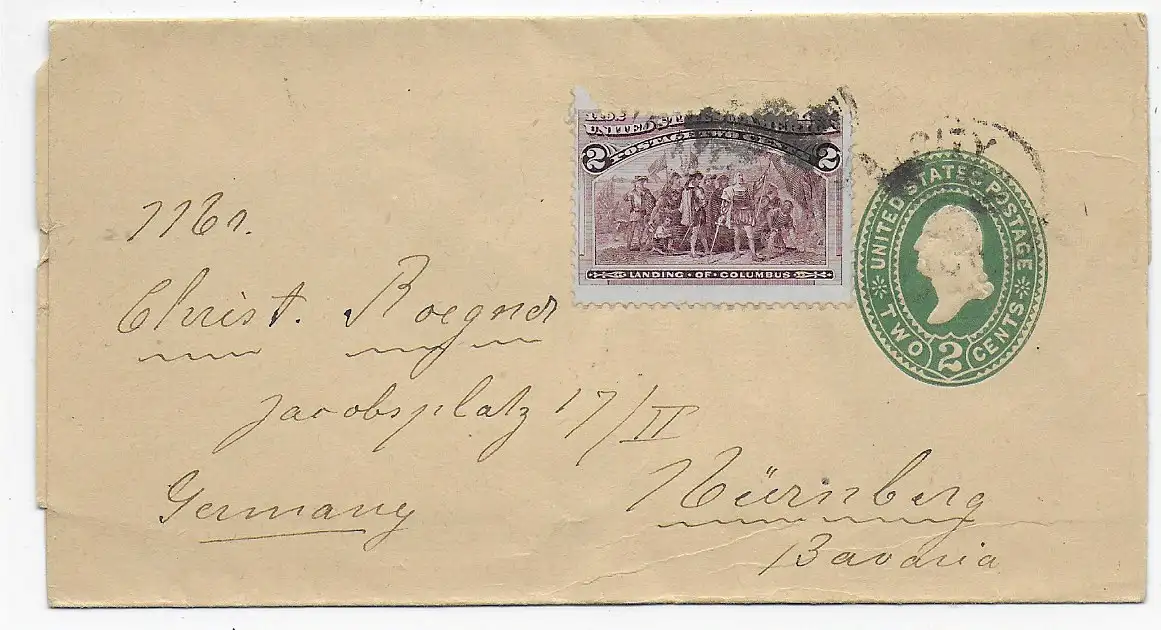 UNITED STATES OF AMERICA
POSTAGE TWO CENTS
2 2
LANDING · OF · COLUMBUS
CITY
UNITED STATES POSTAGE
TWO 2 CENTS
Mr.
Christ. Roegner
Jacobsplatz 17/II
Nürnberg
Germany
Bavaria